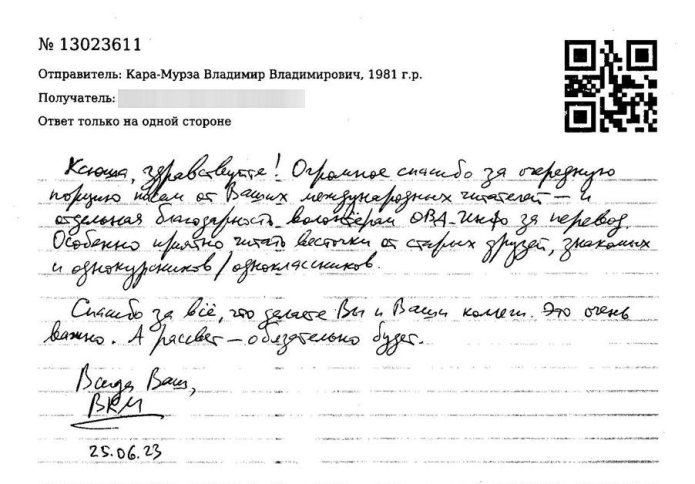 № 13023611
Отправитель: Кара-Мурза Владимир Владимирович, 1981 г.р.
Получатель:
Ответ только на одной стороне
Ксюша, здравствуйте! Огромное спасибо за очередную
порцию писем от Ваших международных читателей – и
отдельная благодарность волонтёрам ОВД-Инфо за перевод.
Особенно приятно читать весточки от старых друзей, знакомых
и однокурсников/одноклассников.
Спасибо за всё, что делаете Вы и Ваши коллеги. Это очень
важно. А рассвет – обязательно будет.
Всегда Ваш,
ВКМ
25.06.23